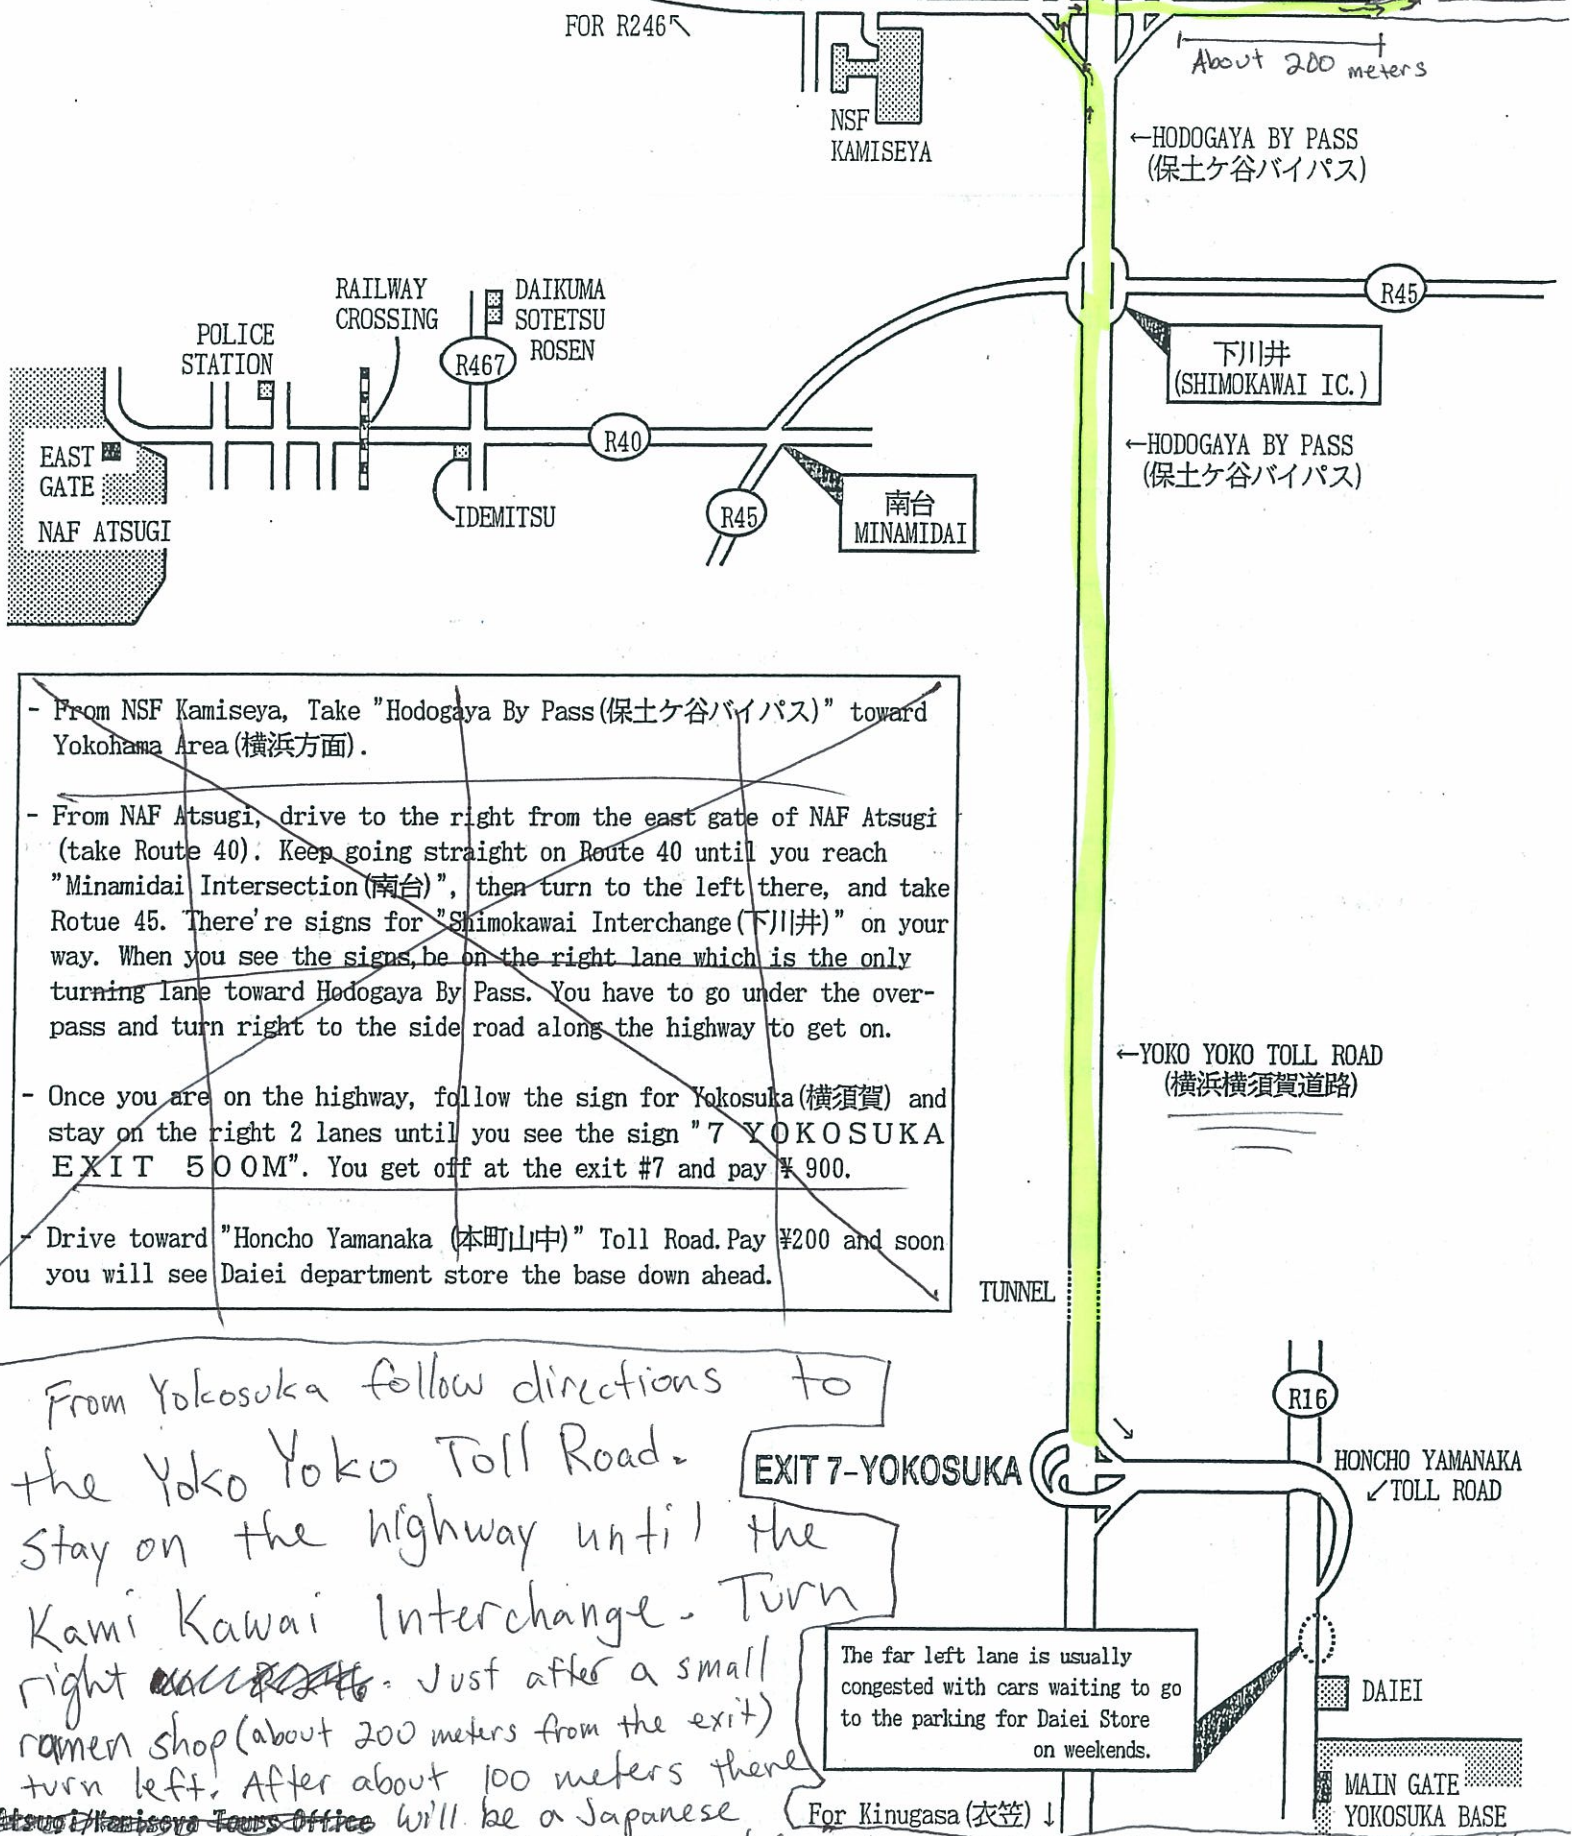 FOR R246↖
About 200 meters
NSF
KAMISEYA
←HODOGAYA BY PASS
(保土ケ谷バイパス)
RAILWAY
CROSSING
DAIKUMA
SOTETSU
ROSEN
R45
POLICE
STATION
R467
下川井
(SHIMOKAWAI IC.)
R40
←HODOGAYA BY PASS
(保土ケ谷バイパス)
EAST
GATE
NAF ATSUGI
IDEMITSU
R45
南台
MINAMIDAI
- From NSF Kamiseya, Take "Hodogaya By Pass(保土ケ谷バイパス)" toward
Yokohama Area(横浜方面).
- From NAF Atsugi, drive to the right from the east gate of NAF Atsugi
(take Route 40). Keep going straight on Route 40 until you reach
"Minamidai Intersection(南台)", then turn to the left there, and take
Rotue 45. There're signs for "Shimokawai Interchange(下川井)" on your
way. When you see the signs,be on the right lane which is the only
turning lane toward Hodogaya By Pass. You have to go under the over-
pass and turn right to the side road along the highway to get on.
- Once you are on the highway, follow the sign for Yokosuka(横須賀) and
stay on the right 2 lanes until you see the sign "7 YOKOSUKA
EXIT 500M". You get off at the exit #7 and pay ¥ 900.
- Drive toward "Honcho Yamanaka (本町山中)" Toll Road. Pay ¥200 and soon
you will see Daiei department store the base down ahead.
←YOKO YOKO TOLL ROAD
(横浜横須賀道路)
TUNNEL
R16
EXIT 7-YOKOSUKA
HONCHO YAMANAKA
↙TOLL ROAD
From Yokosuka follow directions to
the Yoko Yoko Toll Road.
Stay on the highway until the
Kami Kawai Interchange. Turn
right . Just after a small
ramen shop (about 200 meters from the exit)
turn left. After about 100 meters there
Atsugi/Kamiseya Tours Office will be a Japanese
The far left lane is usually
congested with cars waiting to go
to the parking for Daiei Store
on weekends.
DAIEI
MAIN GATE
YOKOSUKA BASE
For Kinugasa(衣笠) ↓